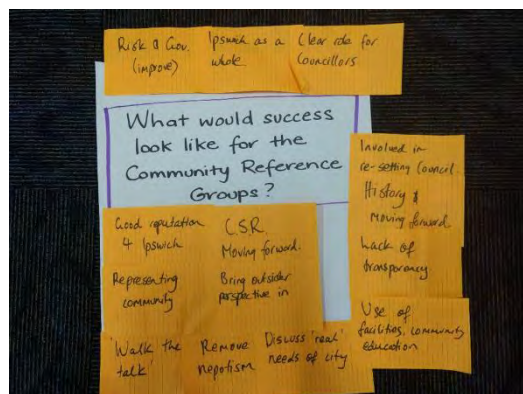 Risk & Gov.
(improve)
Ipswich as a
whole
Clear role for
Councillors
What would success
look like for the
Community Reference
Groups?
Involved in
re-setting Council.
History &
Moving forward.
Lack of
transparency
Use of
facilities, community
education
Good reputation
4 Ipswich
CSR.
Moving forward.
Representing
community
Bring outsider
perspective in
'Walk the
talk'
Remove
nepotism
Discuss 'real'
needs of city